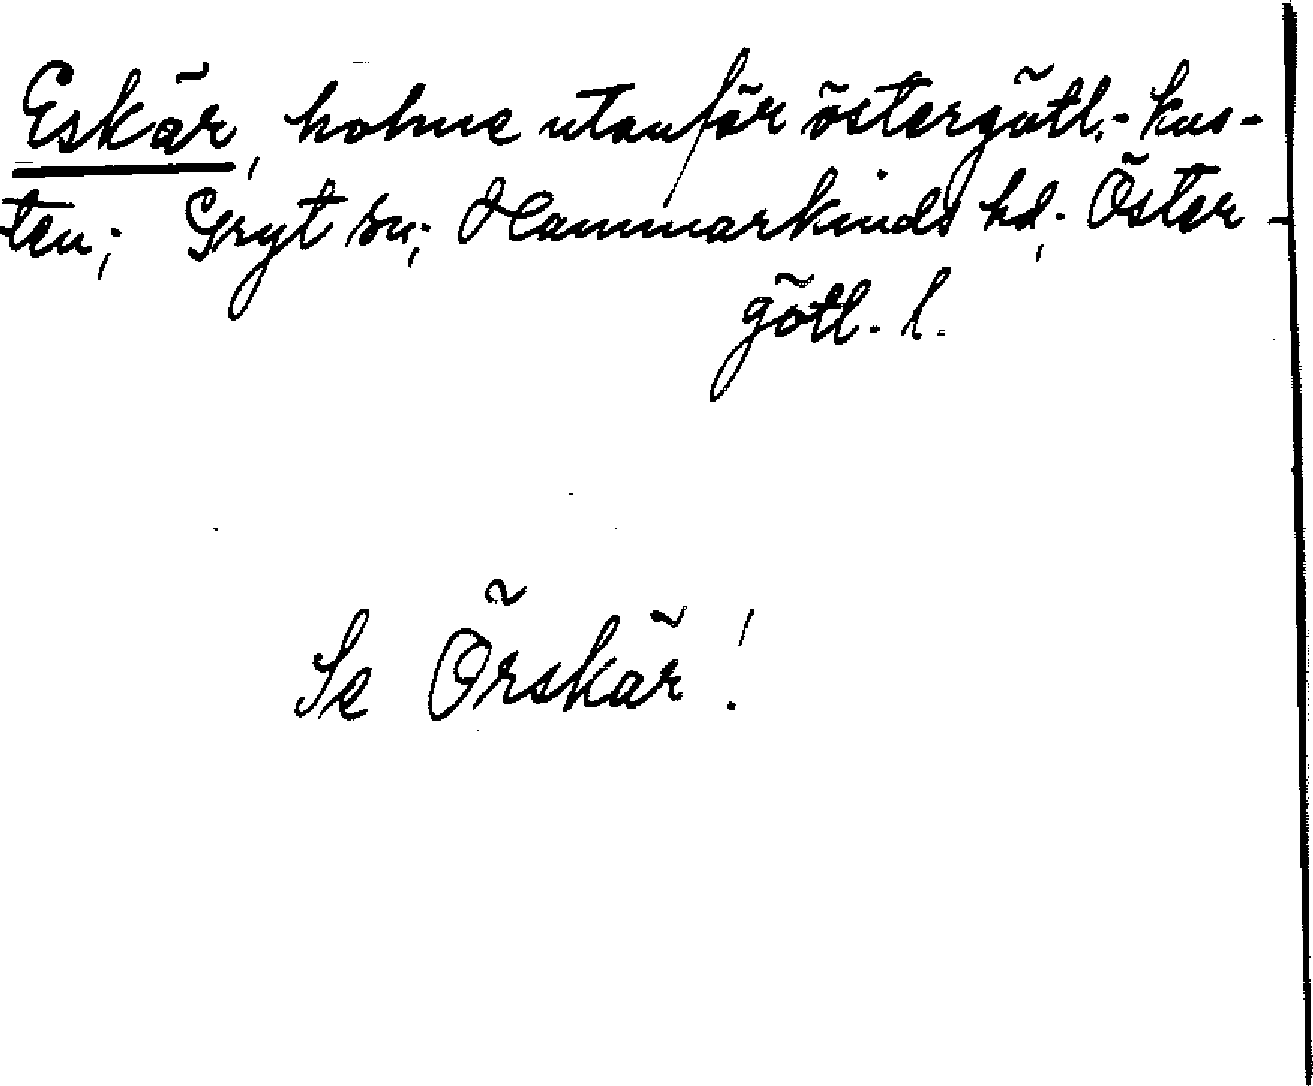 Eskär, holme utanför östergötl.-kus-
ten; Gryt sn; Hammarkinds hd; Öster-
götl. l.
Se Örskär!